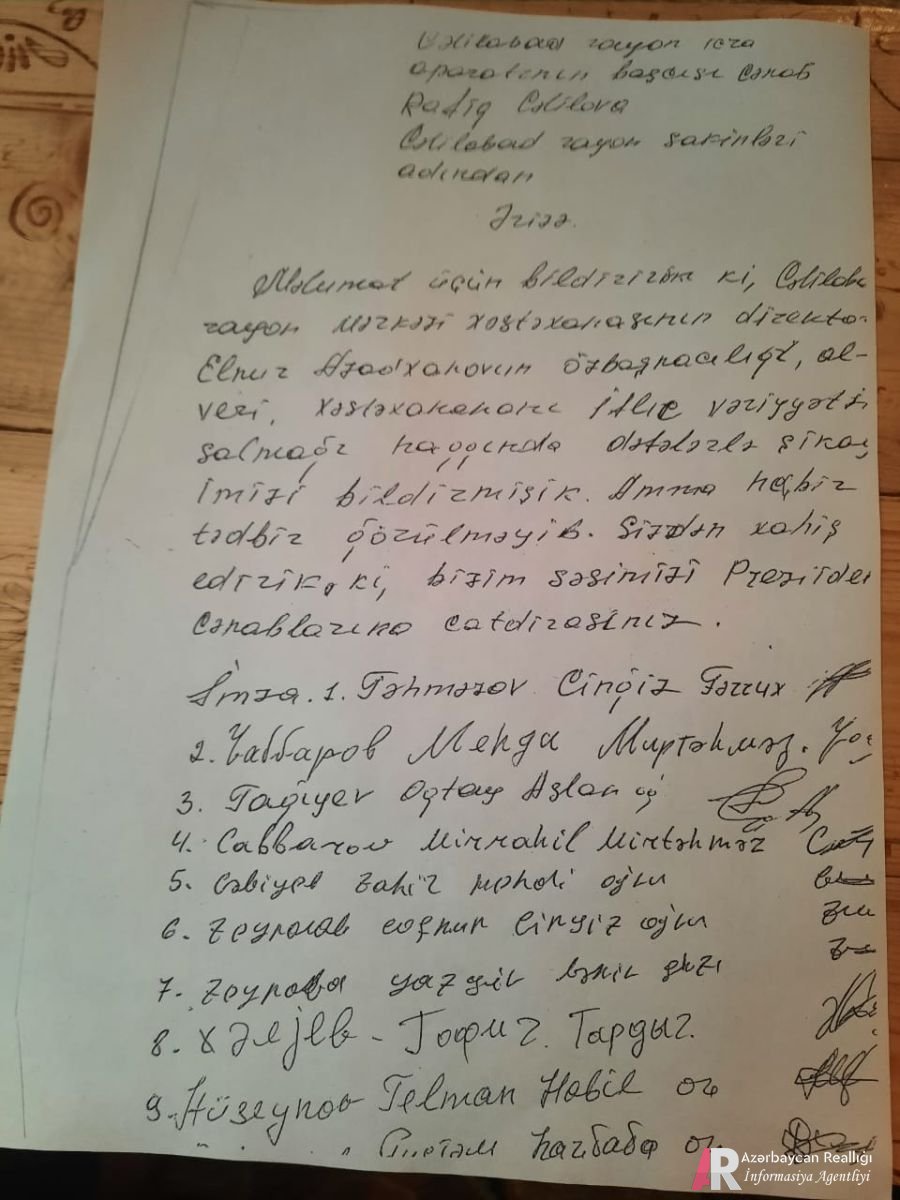 Cəlilabad rayon icra
aparatının başçısı cənab
Rafiq Cəlilova
Cəlilabad rayon sakinləri
adından
Ərizə.
Məlumat üçün bildiririk ki, Cəlilaba
rayon Mərkəzi xəstəxanasının direkto-
Elnur Azadxanovun özbaşnacılığı, al-
veri, xəstəxanananı itlic vəziyyətə
salmağı haqqında dəfələrlə şikay
imizi bildirmişik. Amma heçbir
tədbir görülməyib. Sizdən xahiş
edirik, ki, bizim səsimizi Preziden
cənablarına çatdırasınız.
İmza. 1. Təhməzov Cingiz Fərrux
2. Чаббаров Мehди Миртəhмəз.
3. Tağıyev Oqtay Aslan oğ
4. Cabbarov Mirrahil Mirtəhməz
5. Zahir Mehdi oğlu
6. Zeynalov Coşnun Cingiz oğlu
7. Zeynova qızı
8. Тофиг
9. Hüseynov Telman Habil oğ
" " Рустəм
Azərbaycan Reallığı
İnformasiya Agentliyi